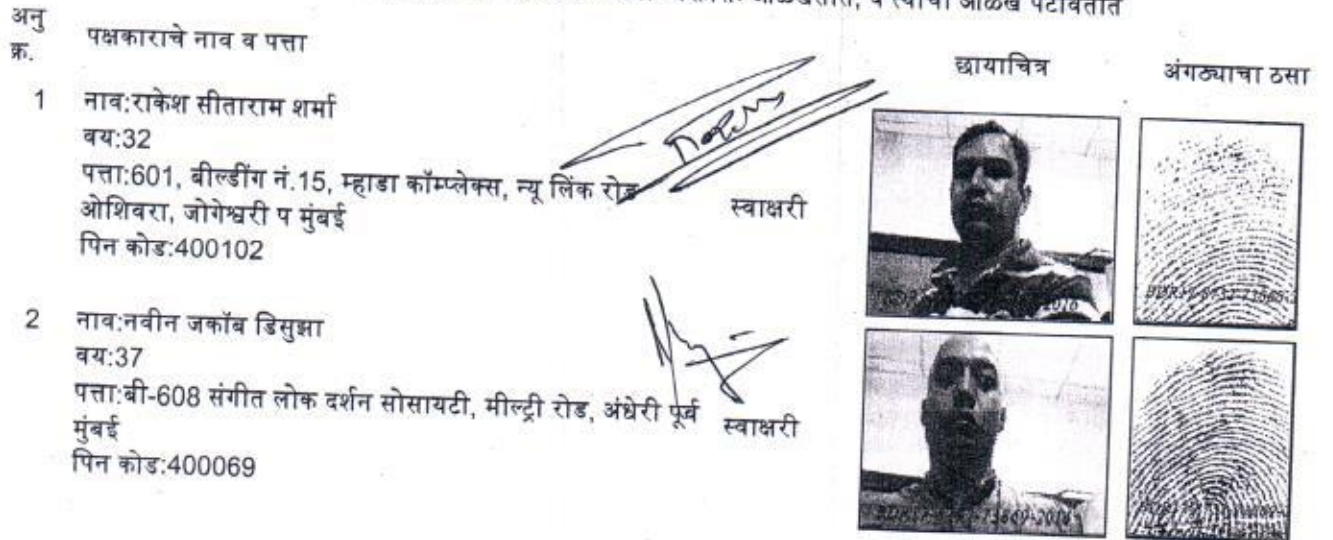 ओळखतात, व त्यांची ओळख पटवितात
अनु क्र.
पक्षकाराचे नाव व पत्ता
छायाचित्र
अंगठ्याचा ठसा
1
नाव:राकेश सीताराम शर्मा
वय:32
पत्ता:601, बील्डींग नं.15, म्हाडा कॉम्प्लेक्स, न्यू लिंक रोड
ओशिवरा, जोगेश्वरी प मुंबई
पिन कोड:400102
स्वाक्षरी
2
नाव:नवीन जकॉब डिसुझा
वय:37
पत्ता:बी-608 संगीत लोक दर्शन सोसायटी, मील्ट्री रोड, अंधेरी पूर्व
मुंबई
पिन कोड:400069
स्वाक्षरी